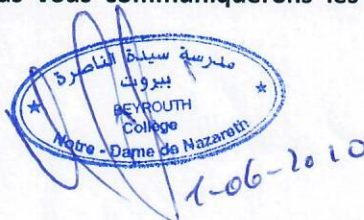 us vous communiquerons les
مدرسة سيدة الناصرة
بيروت
BEYROUTH
Collège
Notre - Dame de Nazareth
1-06-2010